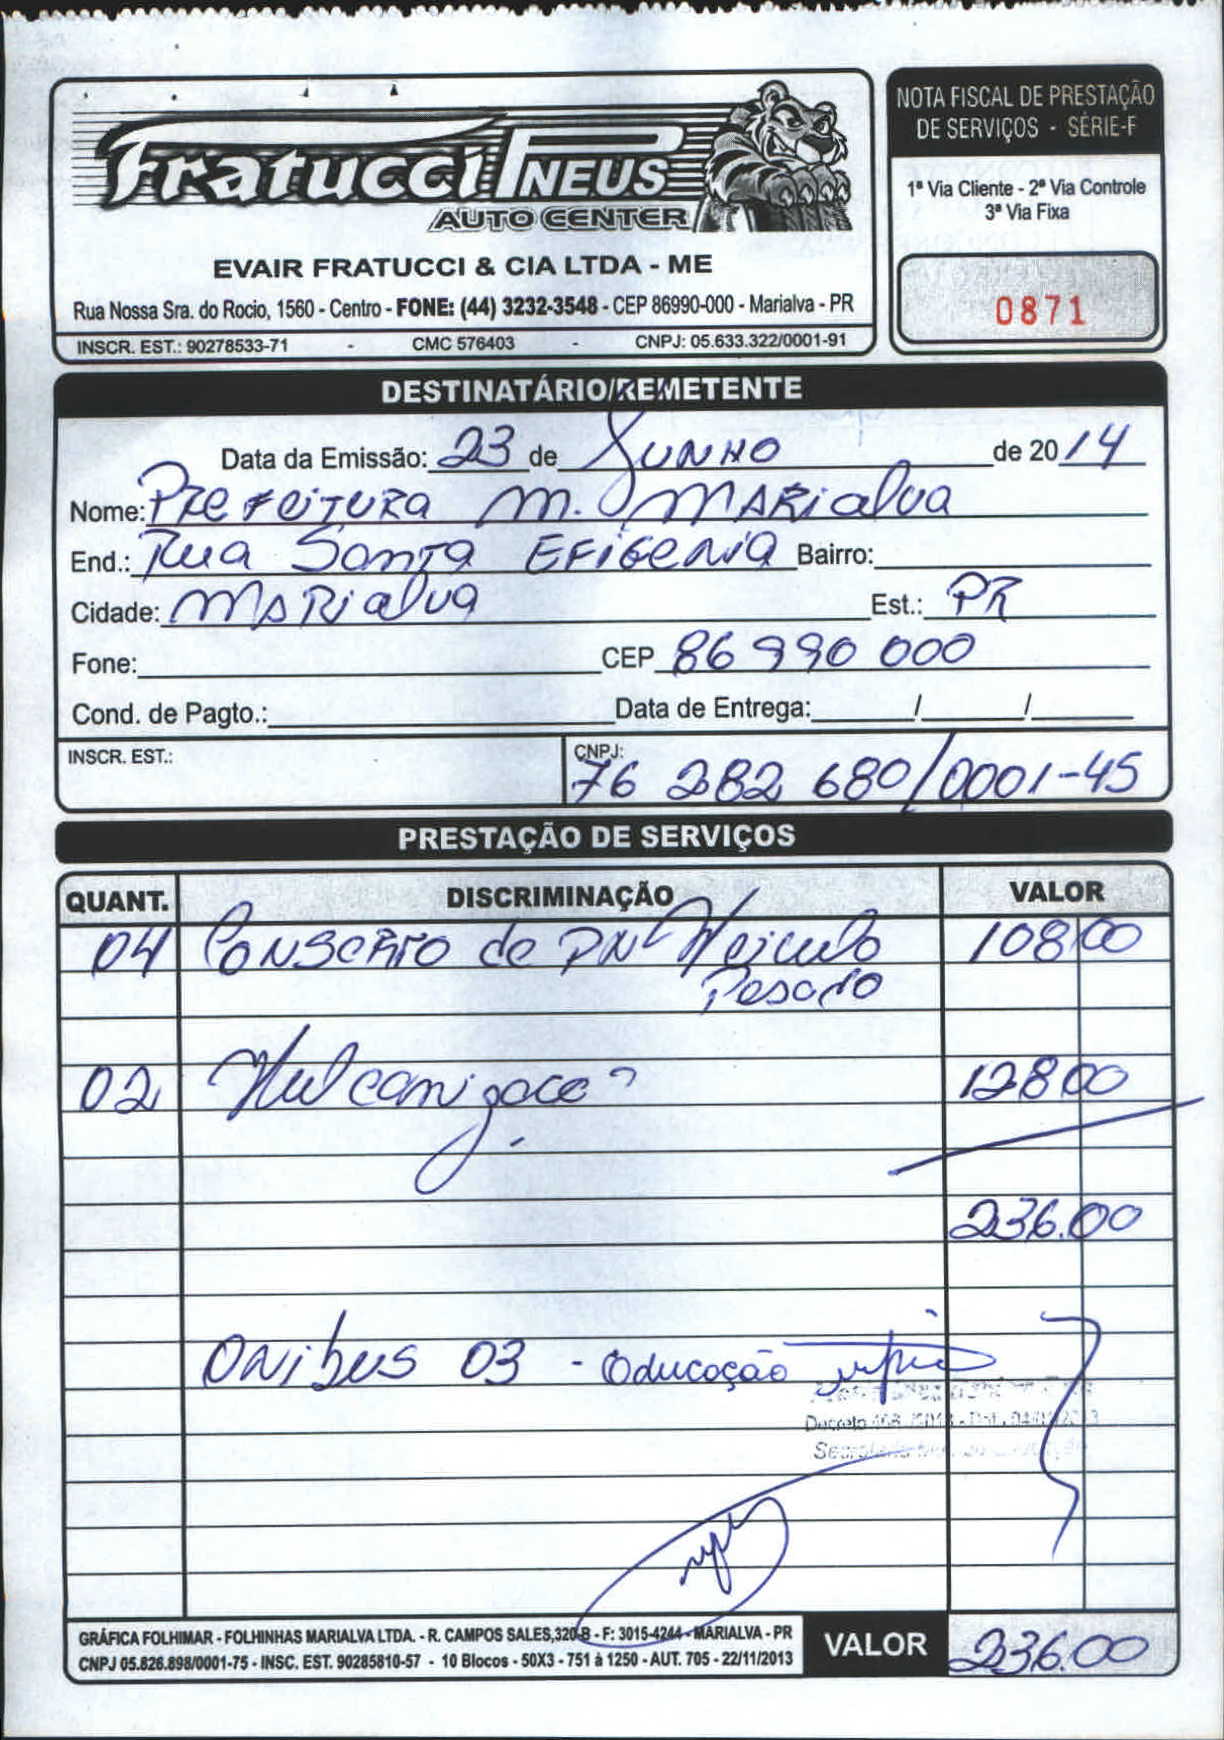 Fratucci PNEUS
AUTO CENTER
EVAIR FRATUCCI & CIA LTDA - ME
Rua Nossa Sra. do Rocio, 1560 - Centro - FONE: (44) 3232-3548 - CEP 86990-000 - Marialva - PR
INSCR. EST.: 90278533-71 - CMC 576403 - CNPJ: 05.633.322/0001-91
NOTA FISCAL DE PRESTAÇÃO
DE SERVIÇOS - SÉRIE-F
1ª Via Cliente - 2ª Via Controle
3ª Via Fixa
0871
DESTINATÁRIO/REMETENTE
Data da Emissão: 23 de JUNHO de 2014
Nome: Prefeitura M. Marialva
End.: Rua Santa Efigenia Bairro:
Cidade: Marialva Est.: PR
Fone: CEP 86990 000
Cond. de Pagto.: Data de Entrega: / /
INSCR. EST.: CNPJ: 76 282 680/0001-45
PRESTAÇÃO DE SERVIÇOS
QUANT. DISCRIMINAÇÃO VALOR
04 Conserto de PN Veiculo 108 00
Pesado
02 Vulcanizacao 128 00
236.00
Onibus 03 - Educação
Decreto
GRÁFICA FOLHIMAR - FOLHINHAS MARIALVA LTDA. - R. CAMPOS SALES, 320-B - F: 3015-4244 - MARIALVA - PR
CNPJ 05.826.898/0001-75 - INSC. EST. 90285810-57 - 10 Blocos - 50X3 - 751 à 1250 - AUT. 705 - 22/11/2013
VALOR 236.00